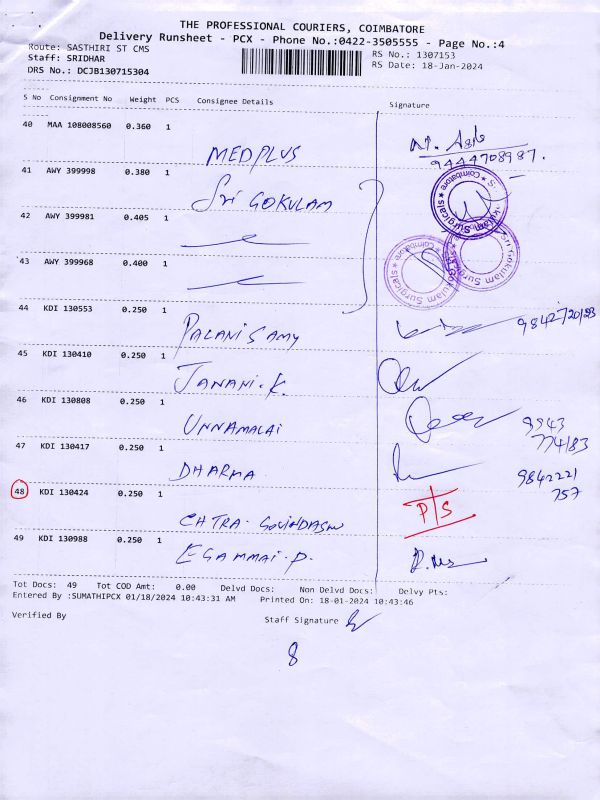 THE PROFESSIONAL COURIERS, COIMBATORE
Delivery Runsheet - PCX - Phone No.:0422-3505555 - Page No.:4
Route: SASTHIRI ST CMS
RS No.: 1307153
Staff: SRIDHAR
RS Date: 18-Jan-2024
DRS No.: DCJB130715304
S No Consignment No Weight PCS Consignee Details Signature
40 MAA 108008560 0.360 1
MEDPLUS
9444708987.
41 AWY 399998 0.380 1
Sri GOKULAM
42 AWY 399981 0.405 1
43 AWY 399968 0.400 1
44 KDI 130553 0.250 1
PALANISAMY
45 KDI 130410 0.250 1
JANANI.K.
46 KDI 130808 0.250 1
UNNAMALAI
9943
774183
47 KDI 130417 0.250 1
DHARMA
9842221
757
48 KDI 130424 0.250 1
P/S
49 KDI 130988 0.250 1
Tot Docs: 49 Tot COD Amt: 0.00 Delvd Docs: Non Delvd Docs: Delvy Pts:
Entered By :SUMATHIPCX 01/18/2024 10:43:31 AM Printed On: 18-01-2024 10:43:46
Verified By
Staff Signature
8